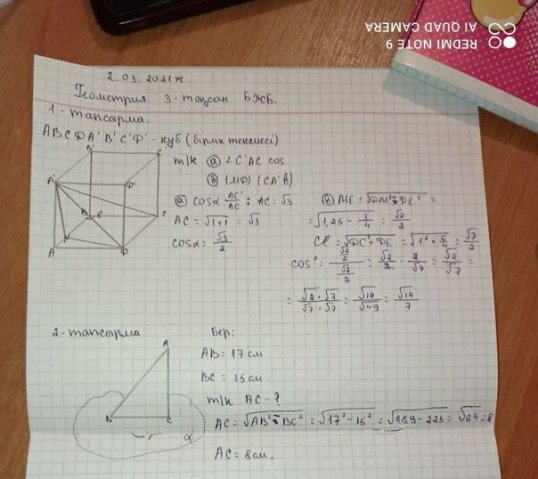 REDMI NOTE 9
AI QUAD CAMERA
2.03.2021ж.
Геометрия 3-тоқсан БЖБ.
1-тапсырма.
ABCDA'B'C'D' - куб (бірлік
т/к a) ∠C'AC cos
b) (MD) (CA'B)
a) cosα AC'/AC ; AC = √3
AC = √1+1 = √3
cosα = √3/2
b) ME = √DM² + DE² =
= √1,25 - 3/4 = √2/2
CE = √DC² + DE = √1² + 5/4 = √7/2
cos² = (√2/2)/(√7/2) = √2/2 · 2/√7 = √2/√7 =
= √2 · √7/√7 · √7 = √14/√49 = √14/7
A' B' C' D'
A B C D
2-тапсырма
Бер:
AB = 17 см
BC = 15 см
т/к AC - ?
AC = √AB² - BC² = √17² - 15² = √289 - 225 = √64 = 8
AC = 8 см.
A
B
C
α